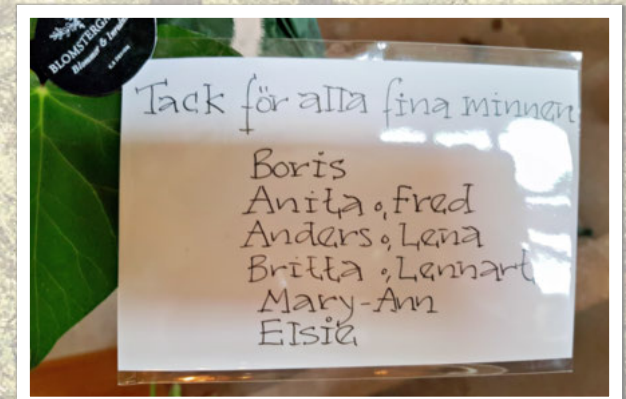 BLOMSTERG
Blommor &
Tack för alla fina minnen
Boris
Anita o, Fred
Anders o, Lena
Britta o, Lennart
Mary-Ann
Elsie